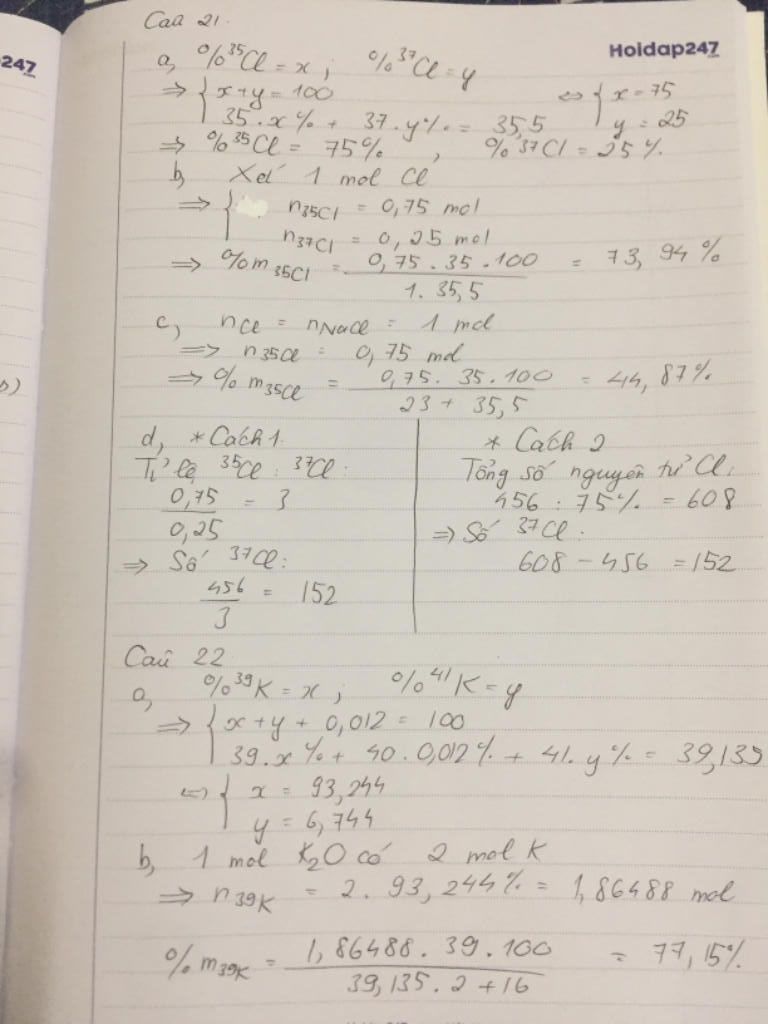 Câu 21.
247
Hoidap247
a, %³⁵Cl = x ; %³⁷Cl = y
=> { x + y = 100
35.x% + 37.y% = 35,5
<=> { x = 75
y = 25
=> %³⁵Cl = 75% , %³⁷Cl = 25%.
b, Xét 1 mol Cl
=> { n35Cl = 0,75 mol
n37Cl = 0,25 mol
=> %m35Cl = 0,75.35.100 / 1.35,5 = 73,94%
c, nCl = nNaCl = 1 mol
=> n35Cl = 0,75 mol
=> %m35Cl = 0,75.35.100 / 23 + 35,5 = 44,87%
d, * Cách 1.
Tỉ lệ ³⁵Cl : ³⁷Cl:
0,75 / 0,25 = 3
=> Số ³⁷Cl:
456 / 3 = 152
* Cách 2
Tổng số nguyên tử Cl:
456 : 75% = 608
=> Số ³⁷Cl:
608 - 456 = 152
Câu 22
a, %³⁹K = x ; %⁴¹K = y
=> { x + y + 0,012 = 100
39.x% + 40.0,012% + 41.y% = 39,135
<=> { x = 93,244
y = 6,744
b, 1 mol K₂O có 2 mol K
=> n39K = 2.93,244% = 1,86488 mol
%m39K = 1,86488.39.100 / 39,135.2 + 16 = 77,15%